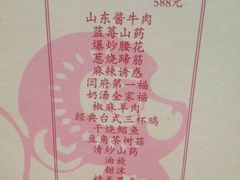 588元
山东酱牛肉
蓝莓山药
爆炒腰花
葱烧蹄筋
麻辣诱惑
闫府第一福
奶汤全家福
椒麻羊肉
经典台式三杯鸡
干烧鲳鱼
豆角茶树菇
清炒山药
油旋
甜沫